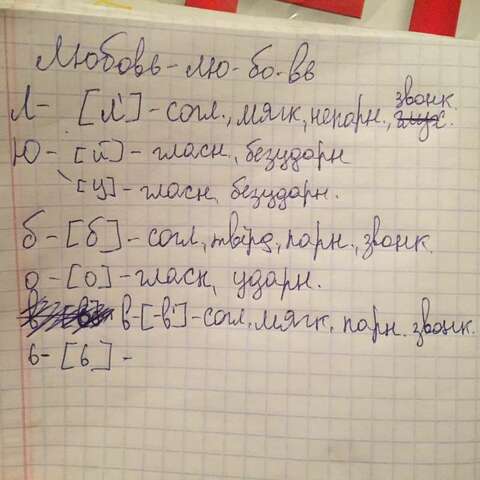 Любовь - лю-бо-вь
Л - [л'] - согл, мягк, непарн., звонк.
Ю - [й] - гласн., безударн
[у] - гласн, безударн.
б - [б] - согл, твёрд, парн., звонк.
о - [о] - гласн, ударн.
в - [в'] - согл, мягк, парн. звонк.
ь - [ь] -